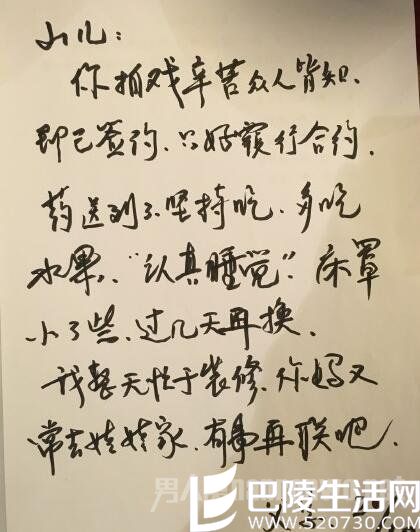 山儿：
你拍戏辛苦众人皆知.
即已签约.只好履行合约.
药送到了.坚持吃.多吃
水果，“认真睡觉”.床罩
小了些.过几天再换.
我整天忙于装修.你妈又
常去娃娃家.有事再联吧.
巴陵生活网
www.520730.com